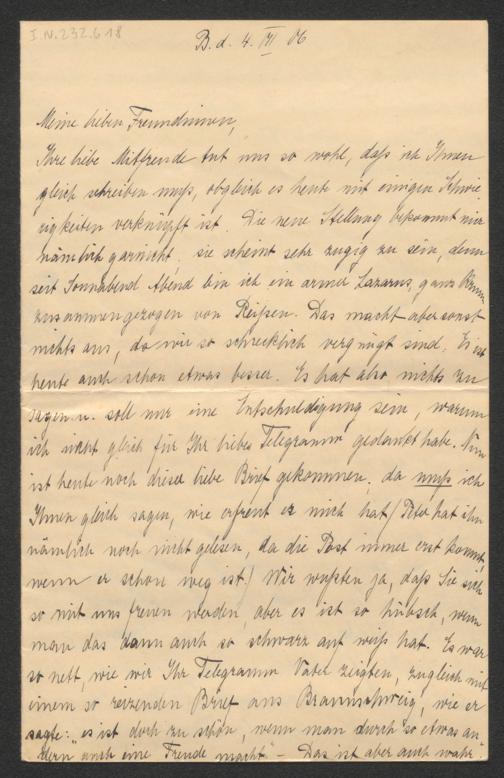 I.N. 232.618
B. d. 4. VII 06
Meine lieben Freundinnen,
Ihre liebe Mitfreude tut uns so wohl, daß ich Ihnen
gleich schreiben muß, obgleich es heute mit einigen Schwie
rigkeiten verknüpft ist. Die neue Stellung bekommt mir
nämlich garnicht, sie scheint sehr zugig zu sein, denn
seit Sonnabend Abend bin ich ein armer Lazarus, ganz krumm
zusammengezogen von Reißen. Das macht aber sonst
nichts aus, da wir so schrecklich vergnügt sind. Es ist
heute auch schon etwas besser. Es hat also nichts zu
sagen u. soll nur eine Entschuldigung sein, warum
ich nicht gleich für Ihr liebes Telegramm gedankt habe. Nun
ist heute noch dieser liebe Brief gekommen, da muß ich
Ihnen gleich sagen, wie erfreut er mich hat (Peter hat ihn
nämlich noch nicht gelesen, da die Post immer erst kommt,
wenn er schon weg ist.) Wir wußten ja, daß Sie sich
so mit uns freuen werden, aber es ist so hübsch, wenn
man das dann auch so schwarz auf weiß hat. Es war
so nett, wie wir Ihr Telegramm Vater zeigten, zugleich mit
einem so reizenden Brief aus Braunschweig, wie er
sagte: "es ist doch zu schön, wenn man durch so etwas an
dern auch eine Freude macht" - Das ist aber auch wahr.